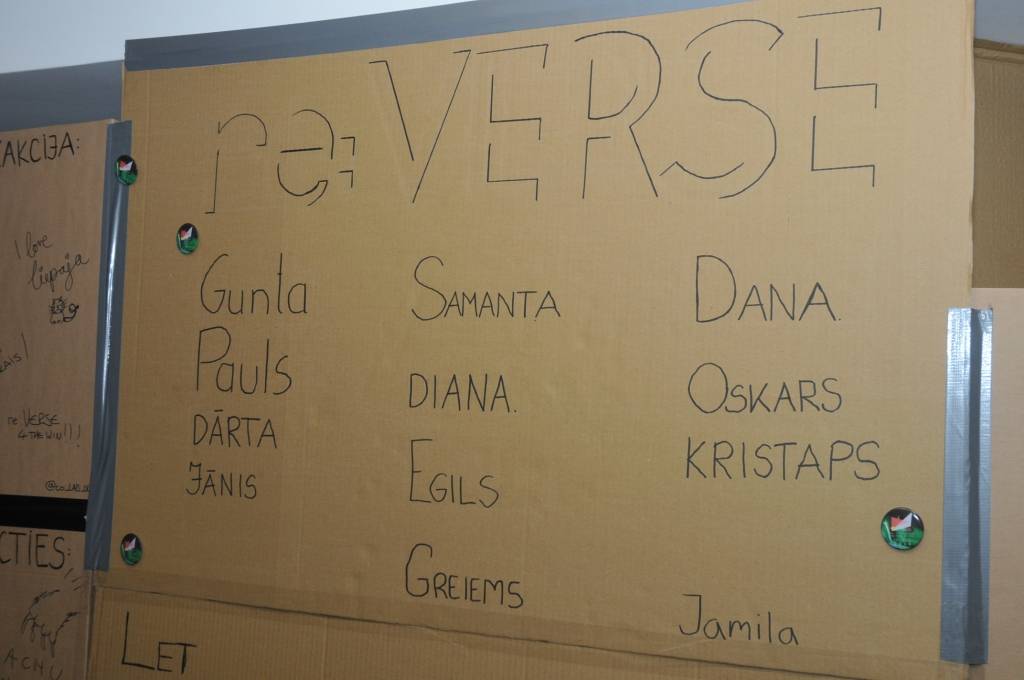 re:VERSE
Gunta
Pauls
DĀRTA
JĀNIS
SAMANTA
DIANA.
EGILS
GREIEMS
DANA.
OSKARS
KRISTAPS
Jamila
LET
AKCIJA:
I love
liepaja
re:VERSE
4 THE WIN!!!
CTIES: